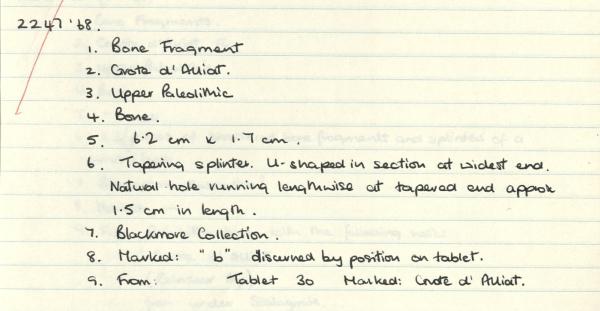 2247 '68.
1. Bone Fragment
2. Grote d'Alliat.
3. Upper Paleolithic
4. Bone.
5. 6.2 cm x 1.7 cm.
6. Tapering splinter. U-shaped in section at widest end.
Natural hole running lengthwise at tapered end approx
1.5 cm in length.
7. Blackmore Collection.
8. Marked: "b" discerned by position on tablet.
9. From: Tablet 30 Marked: Grote d'Alliat.